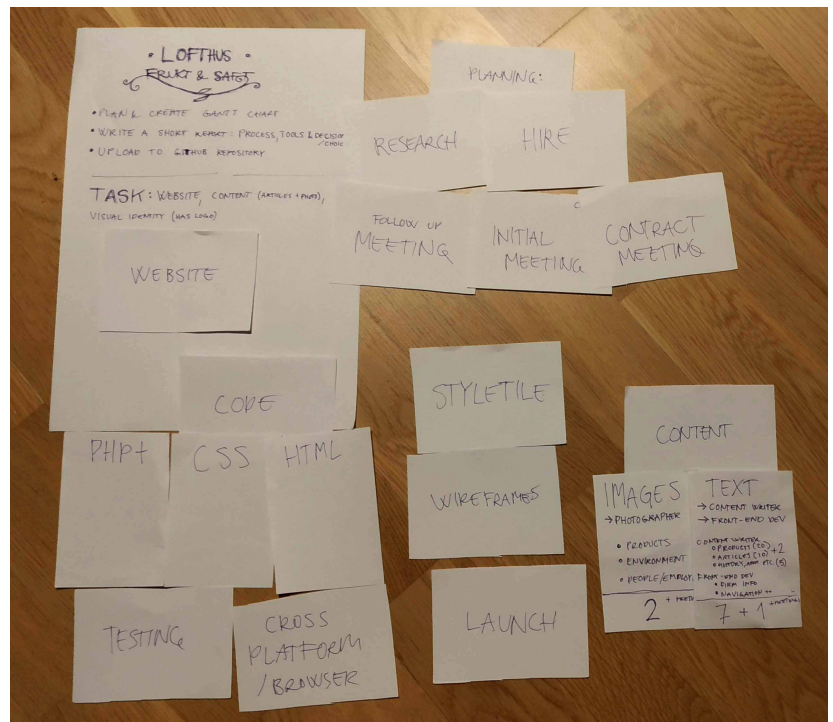 • LOFTHUS •
FRUKT & SAFT
• PLAN & CREATE GANTT CHART
• WRITE A SHORT REPORT: PROCESS, TOOLS & DECISION
/CHOIC
• UPLOAD TO GITHUB REPOSITORY
TASK: WEBSITE, CONTENT (ARTICLES + PHOTO),
VISUAL IDENTITY (HAS LOGO)
WEBSITE
CODE
PHP +
CSS
HTML
TESTING
CROSS
PLATFORM
/BROWSER
PLANNING:
RESEARCH
HIRE
FOLLOW UP
MEETING
INITIAL
MEETING
CONTRACT
MEETING
STYLETILE
WIREFRAMES
LAUNCH
CONTENT
IMAGES
→ PHOTOGRAPHER
• PRODUCTS
• ENVIRONMENT
• PEOPLE/EMPLOY.
2
TEXT
→ CONTENT WRITER
→ FRONT-END DEV
CONTENT WRITER
• PRODUCTS (20)
• ARTICLES (10) +2
• HISTORY, ETC. (5)
FRONT-END DEV
• FIRM INFO
• NAVIGATION ++
7 + 1